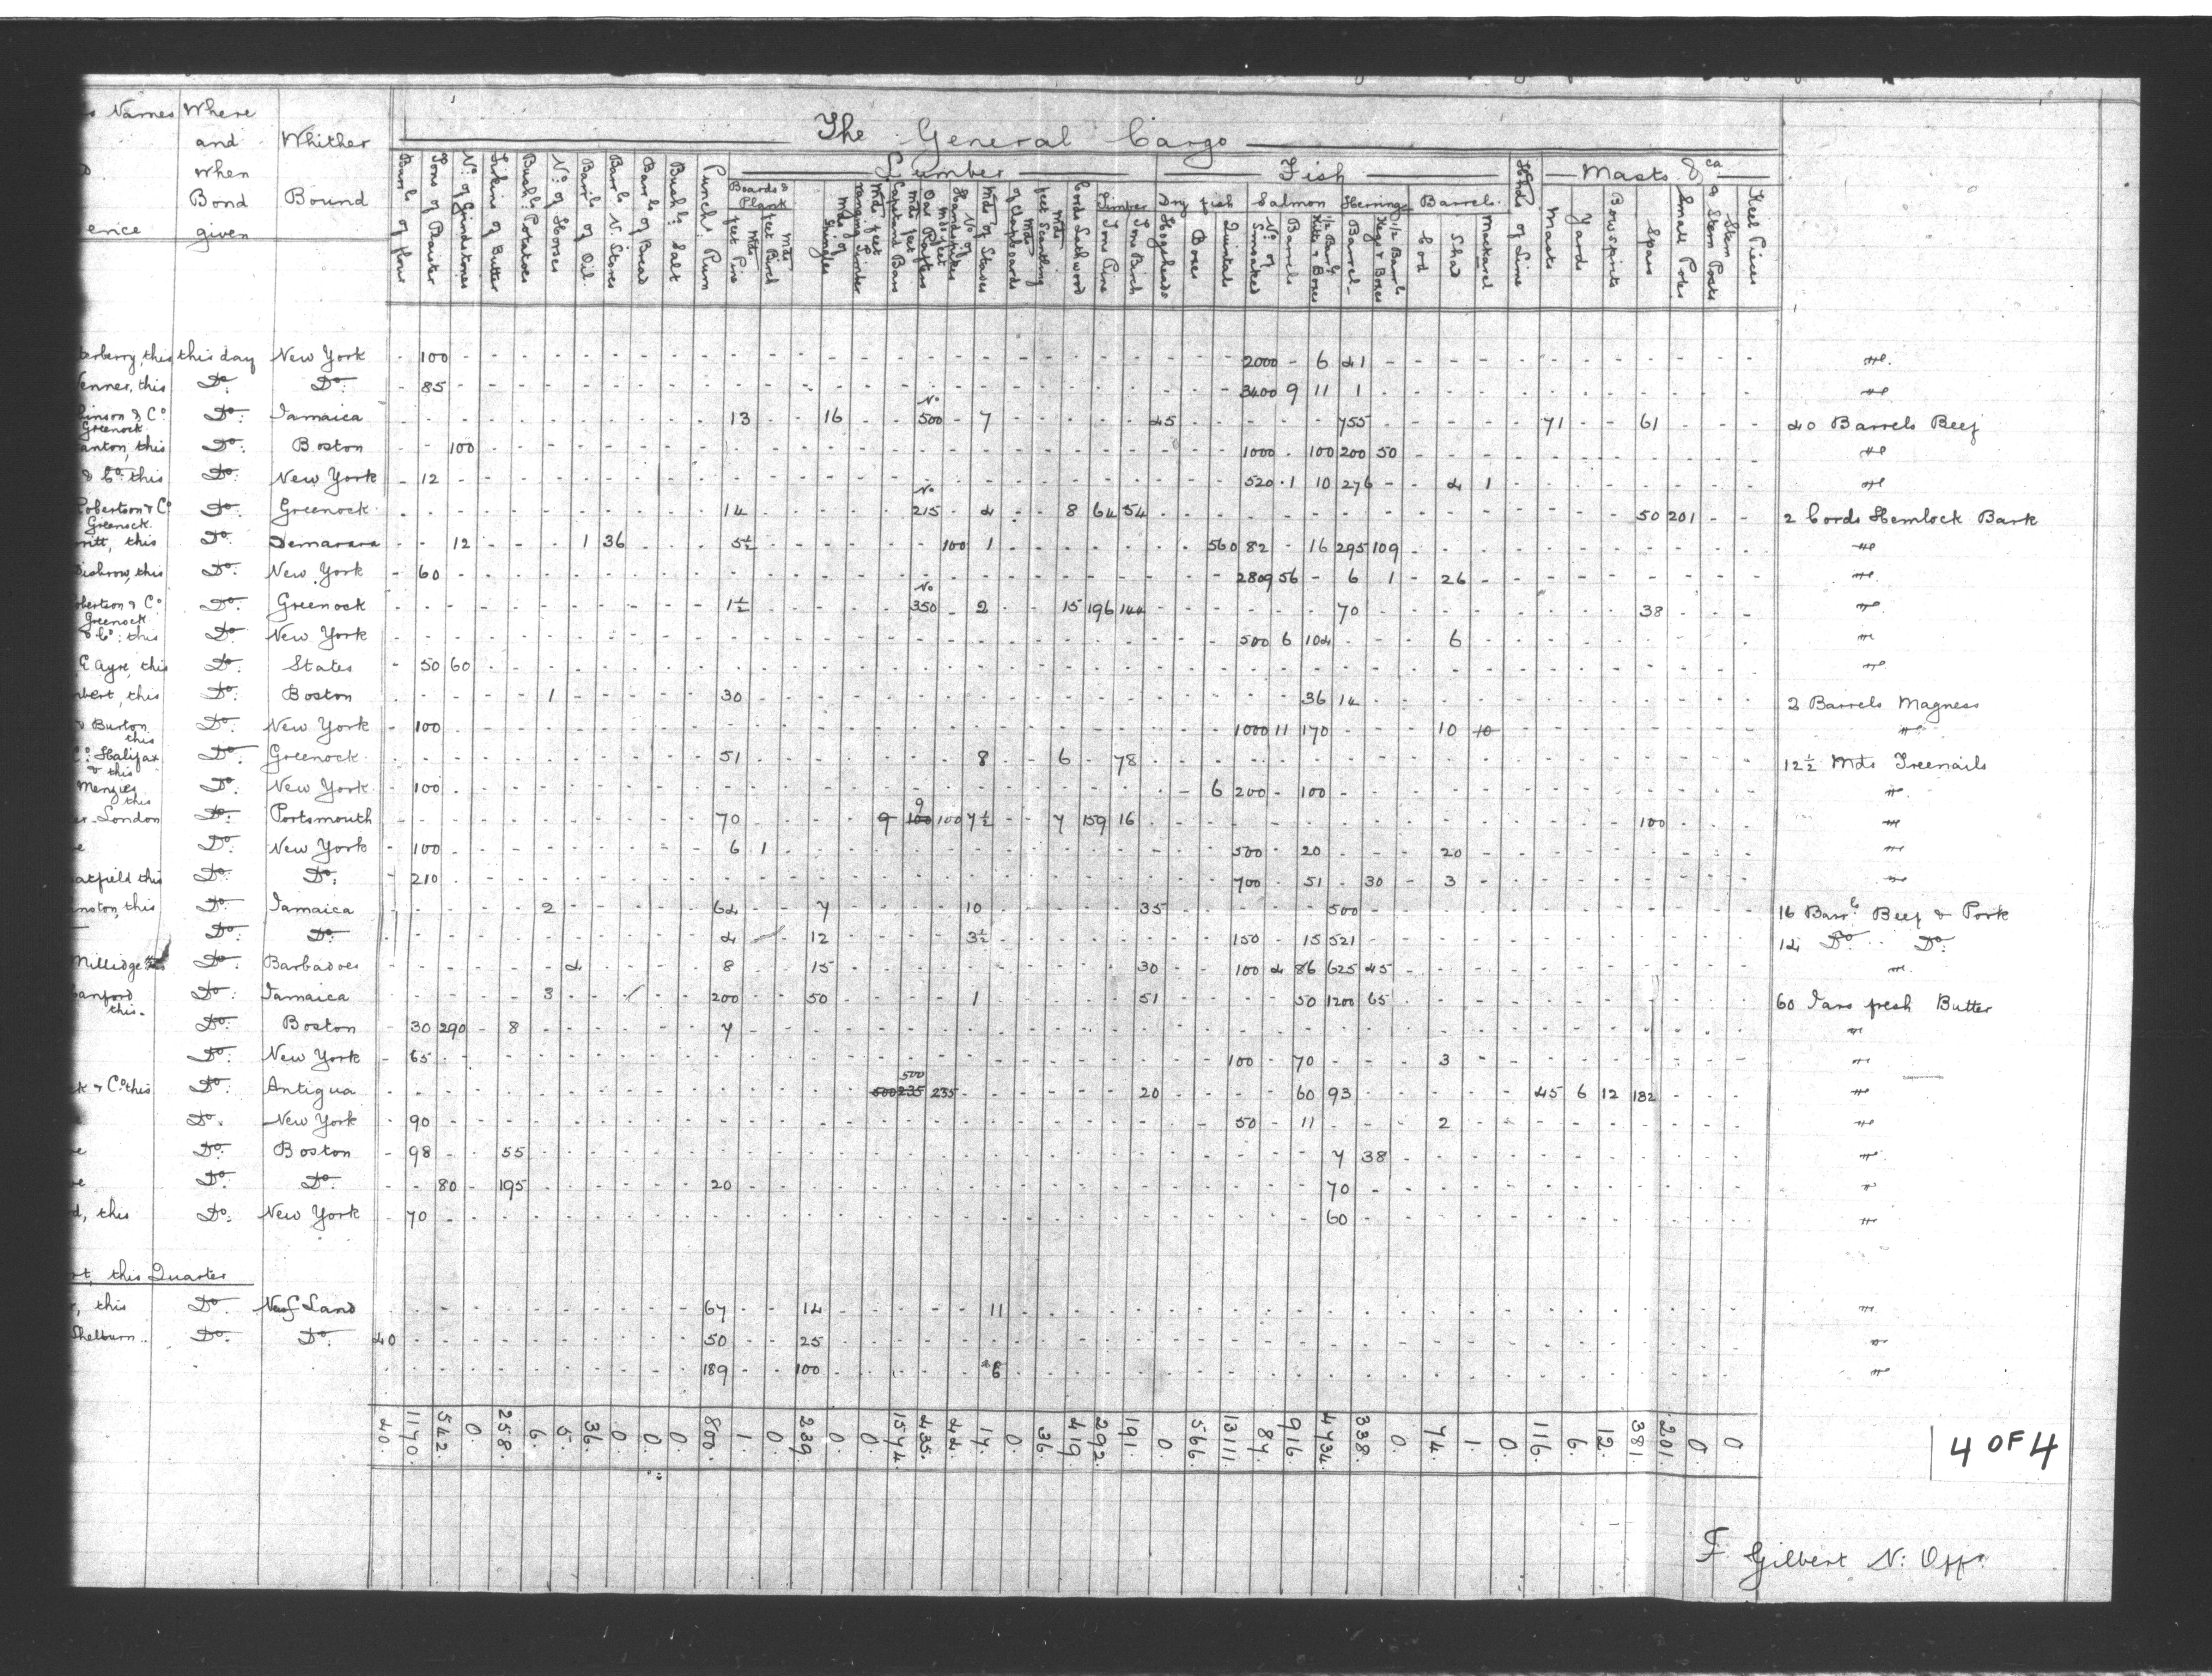 s Names Where
and Whither
when
Bond Bound
erice given
The General Cargo
Lumber Fish Masts &ca
Boards & Plank Timber Dry fish Salmon Herrings Barrels
Barrls of flour
Tons of Plaister
No. of Grindstones
Firkins of Butter
Bushls Potatoes
No. of Horses
Barrls of Oil
Barrls N. Stores
Barrls of Bread
Bushls Salt
Punchs Rum
Mds feet Pine
Mds feet Birch
Mds of Shingles
Mds feet ranging Timber
No. of Capstand Bars
Mds feet Oar Rafters
No. of Handspikes
Mds of Staves
Mds of Clapboards
Mds feet Scantling
Cords Lathwood
Tons Pine
Tons Birch
Hogsheads
Boxes
Quintals
No. of Smoaked
Barrels
1/2 Barrls Kitts & Boxes
Barrels
1/2 Barrls Kegs & Boxes
Cod
Shad
Mackarel
Hhds of Lime
Masts
Yards
Bowsprits
Spars
Small Poles
Stem & Stern Posts
Keel Pieces
erberry, this this day New York - 100 2000 - 6 41
enner, this Do. Do. - 85 3400 9 11 1
inson & Co. Greenock Do. Jamaica 13 16 No 500 - 7 45 755 71 - - 61 40 Barrels Beef
anton, this Do. Boston - - 100 1000 - 100 200 50
& Co. this Do. New York - 12 520 1 10 276 - - 4 1
Robertson & Co. Greenock. Do. Greenock 14 No 215 - 4 8 64 54 50 201 - - 2 Cords Hemlock Bark
ritt, this Do. Demarara - - 12 1 36 5½ 100 1 560 82 - 16 295 109
isbrow, this Do. New York - 60 2809 56 - 6 1 - 26
obertson & Co. Greenock Do. Greenock 1½ No 350 - 2 15 196 144 70 38
& Co. this Do. New York 500 6 104 6
E Ayre, this Do. States - 50 60
bert, this Do. Boston 1 30 36 14 2 Barrels Magness
& Burton this Do. New York - 100 1000 11 170 10 10
Co. Halifax & this Do. Greenock 51 8 6 78 12½ Mds Treenails
Menzies this Do. New York - 100 6 200 - 100
London Do. Portsmouth 70 9 9 100 100 7½ 7 159 16 100
e Do. New York - 100 6 1 500 - 20 20
atfield this Do. Do. - 210 700 - 51 - 30 - 3
nston, this Do. Jamaica 2 64 7 10 35 500 16 Barrls Beef & Pork
Do. Do. 4 12 3½ 150 - 15 521 14 Do. Do.
Millidge Do. Barbadoes 4 8 15 30 100 4 86 625 45
anford this. Do. Jamaica 3 200 50 1 51 50 1200 65 60 Jars fresh Butter
Do. Boston - 30 290 - 8 7
Do. New York - 65 100 - 70 3
k & Co. this Do. Antigua 500 235 500 235 20 60 93 45 6 12 132
Do. New York - 90 50 - 11 2
e Do. Boston - 98 55 7 38
e Do. Do. - - 80 - 195 20 70
d, this Do. New York - 70 60
rt, this Quarter
, this Do. Newf Land 67 14 11
Shelburn Do. Do. 40 50 25
189 100 6
40. 1170. 542. 0. 258. 6. 5. 36. 0. 0. 0. 800. 1. 0. 239. 0. 0. 1574. 435. 44. 17. 0. 36. 419. 292. 191. 0. 566. 13111. 87. 916. 4734. 338. 0. 74. 1. 0. 116. 6. 12. 381 201. 0. 0.
4 OF 4
F Gilbert N: Offr.